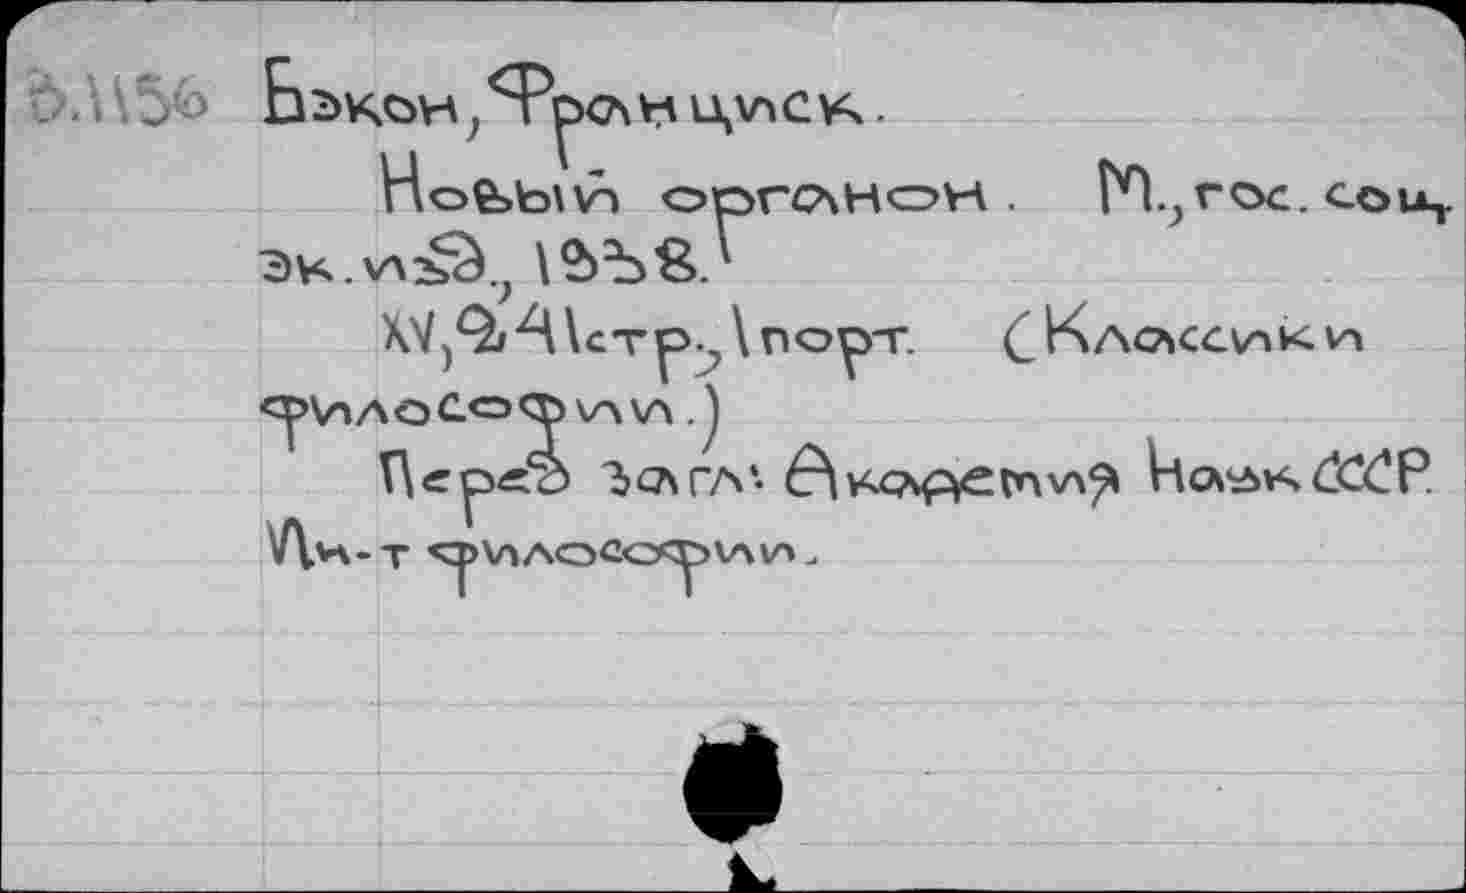 Б.1156 Бэкон, Франциск.
Новый органон. М., гос. соц.
эк. изд., 1938.
XV, 241стр., 1порт. (Классики
философии.)
Перед загл: Академия Наук СССР.
Ин-т философии.